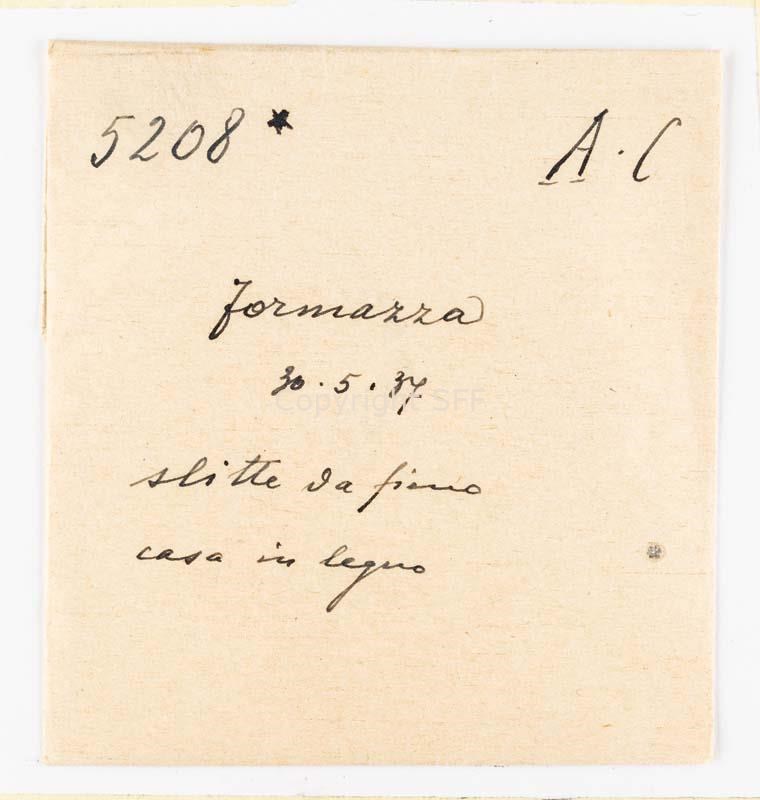 5208*
A. C
Formazza
30.5.37
Copyright SFF
slitte da fieno
casa in legno